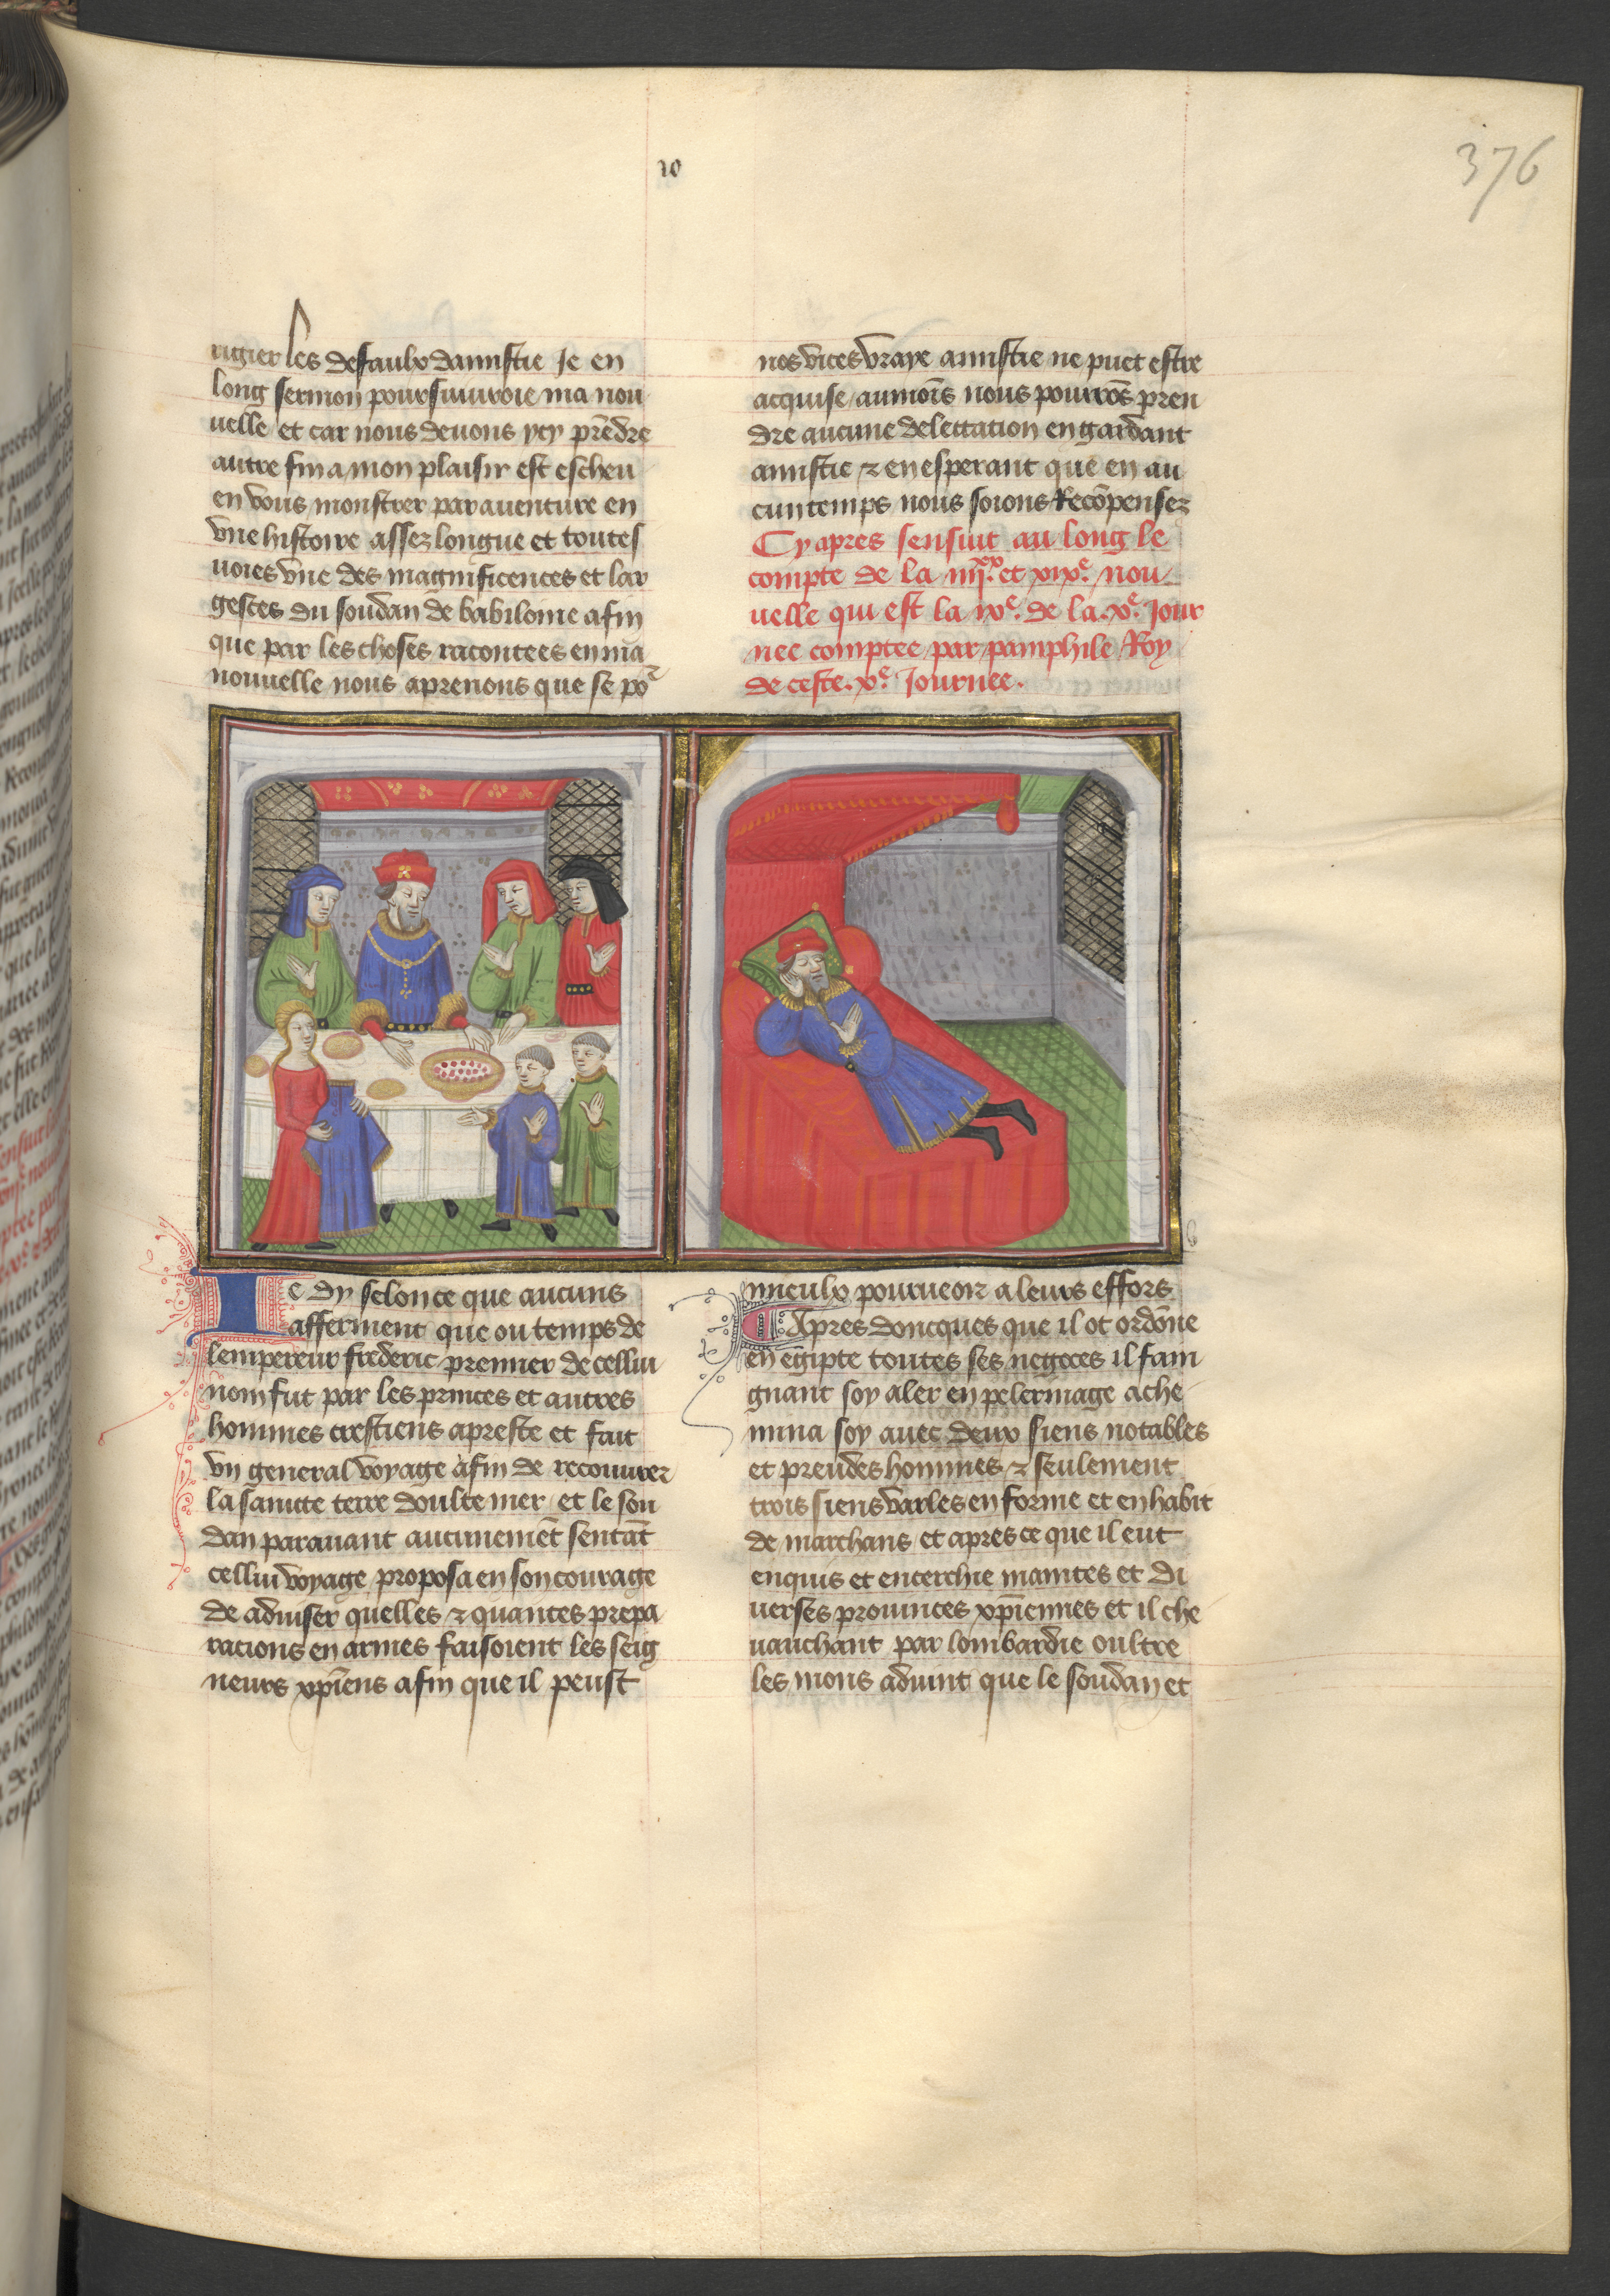 376
10
rigier les defaulx damistie Je en
long sermon poursuiuroie ma nou
uelle et car nous deuons ycy prẽdre
autre fin a mon plaisir est escheu
en vous monstrer par auenture en
vne histoire assez longue et toutes
uoies vne des magnificences et lar
gesces du soudan de babilonie afin
que par les choses racontees en ma
nouuelle nous aprenons que se po²
nos vices vraye amistie ne puet estre
acquise aumoĩs nous pourrõs pren
dre aucune delectation en gardant
amistie ⁊ en esperant que en au
cun temps nous soions Recõpensez
Cy apres sensuit au long le
compte de la iiijˣˣ. et xixᵉ. nou
uelle qui est la ixᵉ. de la .xᵉ. Jour
nee comptee par pamphile Roy
de ceste .xᵉ. Journee.
Ie dy selon ce que aucuns
afferment que ou temps de
lempereur frederic premier de cellui
nom fut par les princes et autres
hommes crestiens apreste et fait
vn general voyage afin de recouurer
la saincte terre doultre mer et le sou
dan parauant aucunemẽt sentãt
cellui voyage proposa en son courage
de aduiser quelles ⁊ quantes prepa
racions en armes faisoient les seig
neurs xp̃iens afin que il peust
mieulx pourueoir a leurs effors
Apres doncques que il ot ordõne
en egipte toutes ses negoces il fain
gnant soy aler en pelerinage ache
mina soy auec deux siens notables
et preudes hommes ⁊ seulement
trois siens varles en forme et en habit
de marchans et apres ce que il eut
enquis et encerchie maintes et di
uerses prouinces xp̃iennes et il che
uauchant par lombardie oultre
les mons aduint que le soudan et